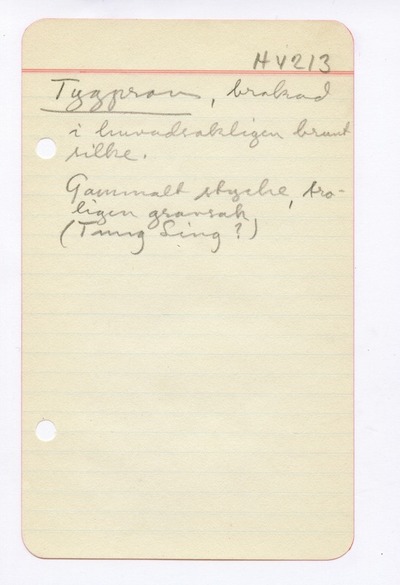 HV213
Tygprov, brokad
i huvudsakligen brunt
silke.
Gammalt stycke, tro-
ligen gravsak
(Tung Ling?)